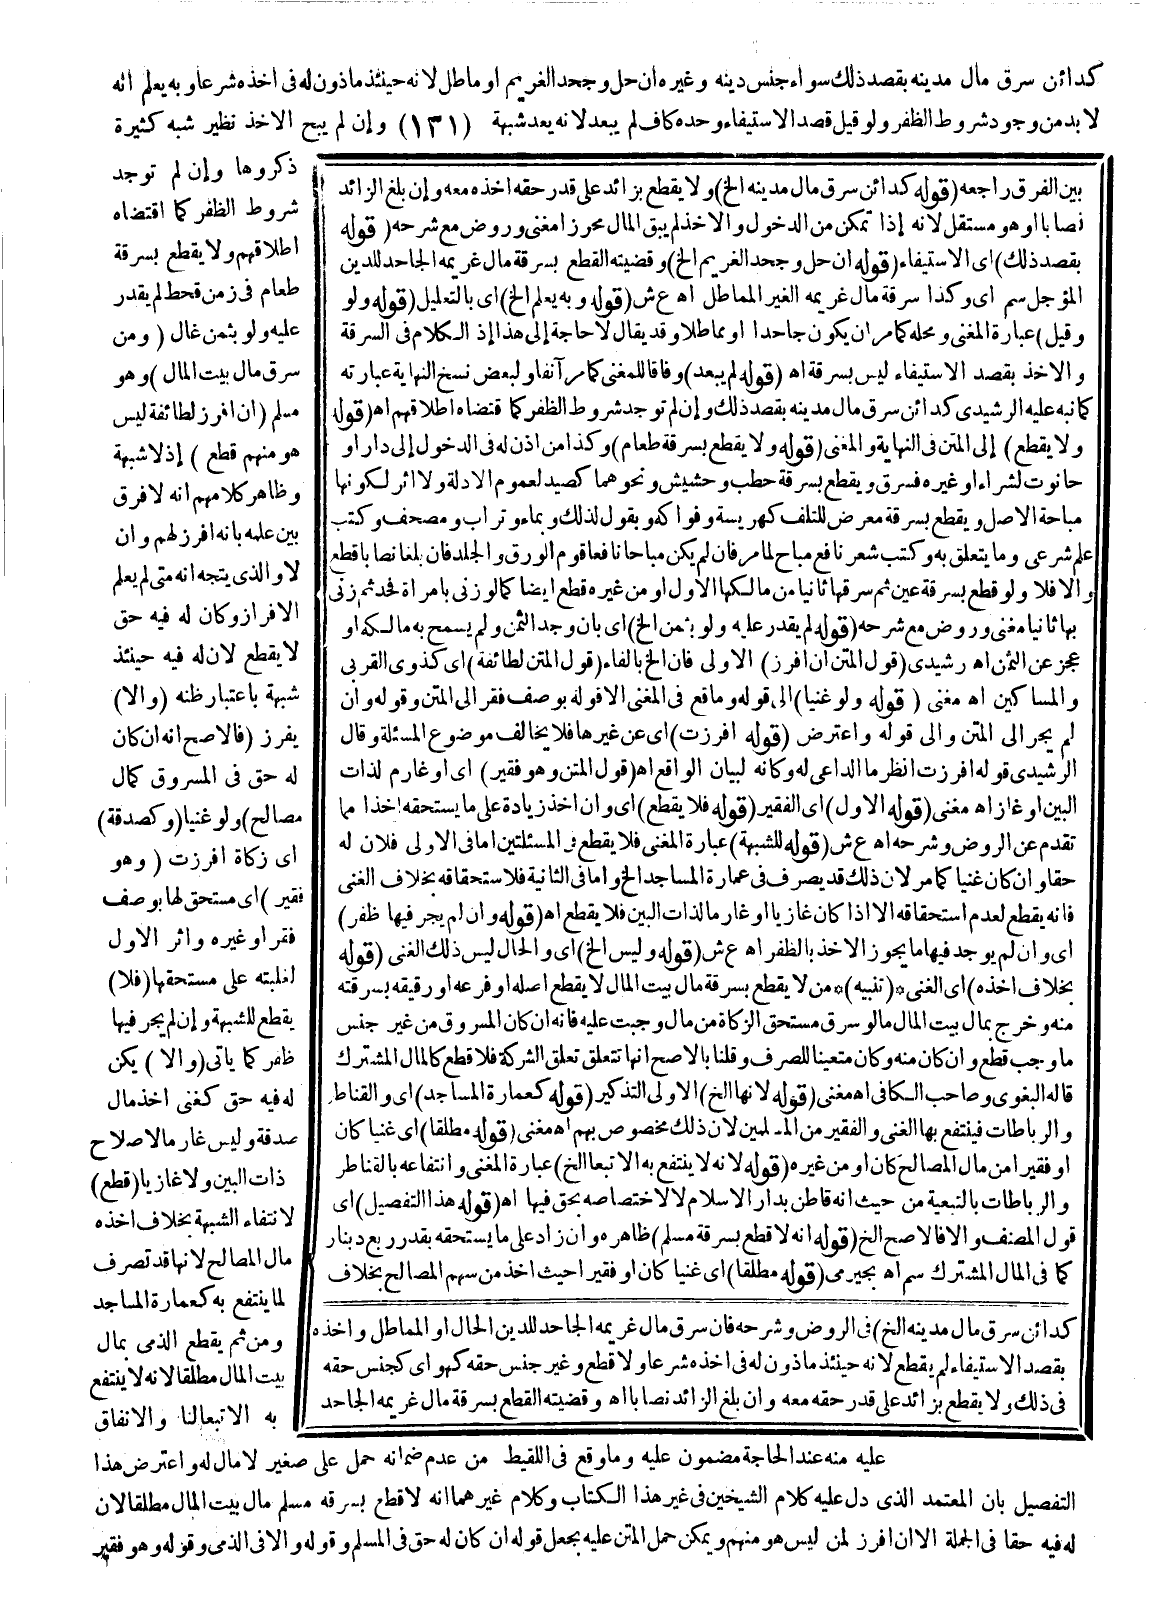 كدائن سرق مال مدينه بقصد ذلك سواء جنس دينه وغيره ان حل وجحد الغريم أو ماطل لانه حينئذ ماذون له فى اخذه شرعا وبه يعلم انه
لا بد من وجود شروط الظفر ولو قيل قصد الاستيفاء وحده كاف لم يبعد لانه يعد شبهة (١٣١) وإن لم يبح الاخذ نظير شبه كثيرة
ذكروها وإن لم توجد
شروط الظفر كما اقتضاه
اطلاقهم ولا يقطع بسرقة
طعام فى زمن قحط لم يقدر
عليه ولو بثمن غال (ومن
سرق مال بيت المال) وهو
مسلم (ان افرز لطائفة ليس
هو منهم قطع) إذ لا شبهة
وظاهر كلامهم انه لا فرق
بين علمه بانه افرز لهم وان
لا والذى يتجه انه متى لم يعلم
الافراز وكان له فيه حق
لا يقطع لان له فيه حينئذ
شبهة باعتبار ظنه (والا)
يفرز (فالاصح انه ان كان
له حق فى المسروق كمال
مصالح) ولو غنيا (وكصدقة)
اى زكاة افرزت (وهو
فقير) اى مستحق لها بوصف
فقر او غيره واثر الاول
لغلبته على مستحقها (فلا)
يقطع للشبهة وإن لم يجر فيها
ظفر كما ياتى (والا) يكن
له فيه حق كغنى اخذ مال
صدقة وليس غارما لاصلاح
ذات البين ولا غازيا (قطع)
لانتفاء الشبهة بخلاف اخذه
مال المصالح لانها قد تصرف
لما ينتفع به كعمارة المساجد
ومن ثم يقطع الذمى بمال
بيت المال مطلقا لانه لا ينتفع
به الا تبعا لنا والانفاق
عليه منه عند الحاجة مضمون عليه وما وقع فى اللقيط من عدم ضمانه حمل على صغير لا مال له واعترض هذا
التفصيل بان المعتمد الذى دل عليه كلام الشيخين فى غير هذا الكتاب وكلام غيرهما انه لا قطع بسرقه مسلم مال بيت المال مطلقا لان
له فيه حقا فى الجملة الا ان افرز لمن ليس هو منهم ويمكن حمل المتن عليه بجعل قوله ان كان له حق فى المسلم وقوله والا فى الذمى وقوله وهو فقير
بين الفرق راجعه (قوله كدائن سرق مال مدينه الخ) ولا يقطع بزائد على قدر حقه اخذه معه وإن بلغ الزائد
نصابا او هو مستقل لانه إذا تمكن من الدخول والاخذ لم يبق المال محرزا مغنى وروض مع شرحه (قوله
بقصد ذلك) اى الاستيفاء (قوله ان حل وجحد الغريم الخ) وقضيته القطع بسرقة مال غريمه الجاحد للدين
المؤجل سم اى وكذا سرقة مال غريمه الغير المماطل اه ع ش (قوله وبه يعلم الخ) اى بالتعليل (قوله ولو
وقيل) عبارة المغنى ومحله كما مر ان يكون جاحدا او مماطلا وقد يقال لا حاجة إلى هذا إذ الكلام فى السرقة
والاخذ بقصد الاستيفاء ليس بسرقة اه (قوله لم يبعد) وفاقا للمغنى كما مر آنفا ولبعض نسخ النهاية عبارته
كما نبه عليه الرشيدى كدائن سرق مال مدينه بقصد ذلك وإن لم توجد شروط الظفر كما اقتضاه اطلاقهم اه (قوله
ولا يقطع) إلى المتن فى النهاية والمغنى (قوله ولا يقطع بسرقة طعام) وكذا من اذن له فى الدخول إلى دار او
حانوت لشراء او غيره فسرق ويقطع بسرقة حطب وحشيش ونحوهما كصيد لعموم الادلة ولا اثر لكونها
مباحة الاصل ويقطع بسرقة معرض للتلف كهريسة وفواكه وبقول لذلك وبماء وتراب ومصحف وكتب
علم شرعى وما يتعلق به وكتب شعر نافع مباح لما مر فان لم يكن مباحا نافعا قوم الورق والجلد فان بلغا نصابا قطع
والا فلا ولو قطع بسرقة عين ثم سرقها ثانيا من مالكها الاول او من غيره قطع ايضا كما لو زنى بامراة فحد ثم زنى
بها ثانيا مغنى وروض مع شرحه (قوله لم يقدر عليه ولو بثمن الخ) اى بان وجد الثمن ولم يسمح به مالكه او
عجز عن الثمن اه رشيدى (قول المتن ان افرز) الاولى فان الخ بالفاء (قول المتن لطائفة) اى كذوى القربى
والمساكين اه مغنى (قوله ولو غنيا) الى قوله وما فع فى المغنى الا قوله بوصف فقر الى المتن وقوله وان
لم يجر الى المتن والى قوله واعترض (قوله افرزت) اى عن غيرها فلا يخالف موضوع المسئلة وقال
الرشيدى قوله افرزت انظر ما الداعى له وكانه لبيان الواقع اه (قول المتن وهو فقير) اى او غارم لذات
البين او غاز اه مغنى (قوله الاول) اى الفقير (قوله فلا يقطع) اى وان اخذ زيادة على ما يستحقه اخذا مما
تقدم عن الروض وشرحه اه ع ش (قوله للشبهة) عبارة المغنى فلا يقطع فى المسئلتين اما فى الاولى فلان له
حقا وان كان غنيا كما مر لان ذلك قد يصرف فى عمارة المساجد الخ واما فى الثانية فلاستحقاقه بخلاف الغنى
فانه يقطع لعدم استحقاقه الا اذا كان غازيا او غارما لذات البين فلا يقطع اه (قوله وان لم يجر فيها ظفر)
اى وان لم يوجد فيها ما يجوز الاخذ بالظفر اه ع ش (قوله وليس الخ) اى والحال ليس ذلك الغنى (قوله
بخلاف اخذه) اى الغنى *(تنبيه)* من لا يقطع بسرقة مال بيت المال لا يقطع اصله او فرعه او رقيقه بسرقته
منه وخرج بمال بيت المال ما لو سرق مستحق الزكاة من مال وجبت عليه فانه ان كان المسروق من غير جنس
ما وجب قطع وان كان منه وكان متعينا للصرف وقلنا بالاصح انها تتعلق تعلق الشركة فلا قطع كالمال المشترك
قاله البغوى وصاحب الكافى اه مغنى (قوله لانها الخ) الاولى التذكير (قوله كعمارة المساجد) اى والقناطر
والرباطات فينتفع بها الغنى والفقير من المسلمين لان ذلك مخصوص بهم اه مغنى (قوله مطلقا) اى غنيا كان
او فقيرا من مال المصالح كان او من غيره (قوله لانه لا ينتفع به الا تبعا الخ) عبارة المغنى وانتفاعه بالقناطر
والرباطات بالتبعية من حيث انه قاطن بدار الاسلام لا لاختصاصه بحق فيها اه (قوله هذا التفصيل) اى
قول المصنف والا فالاصح الخ (قوله انه لا قطع بسرقة مسلم) ظاهره وان زاد على ما يستحقه بقدر ربع دينار
كما فى المال المشترك سم اه بجيرمى (قوله مطلقا) اى غنيا كان او فقيرا حيث اخذ من سهم المصالح بخلاف
كدائن سرق مال مدينه الخ) فى الروض وشرحه فان سرق مال غريمه الجاحد للدين الحال او المماطل واخذه
بقصد الاستيفاء لم يقطع لانه حينئذ ماذون له فى اخذه شرعا ولا قطع وغير جنس حقه كهو اى كجنس حقه
فى ذلك ولا يقطع بزائد على قدر حقه معه وان بلغ الزائد نصابا اه وقضيته القطع بسرقة مال غريمه الجاحد